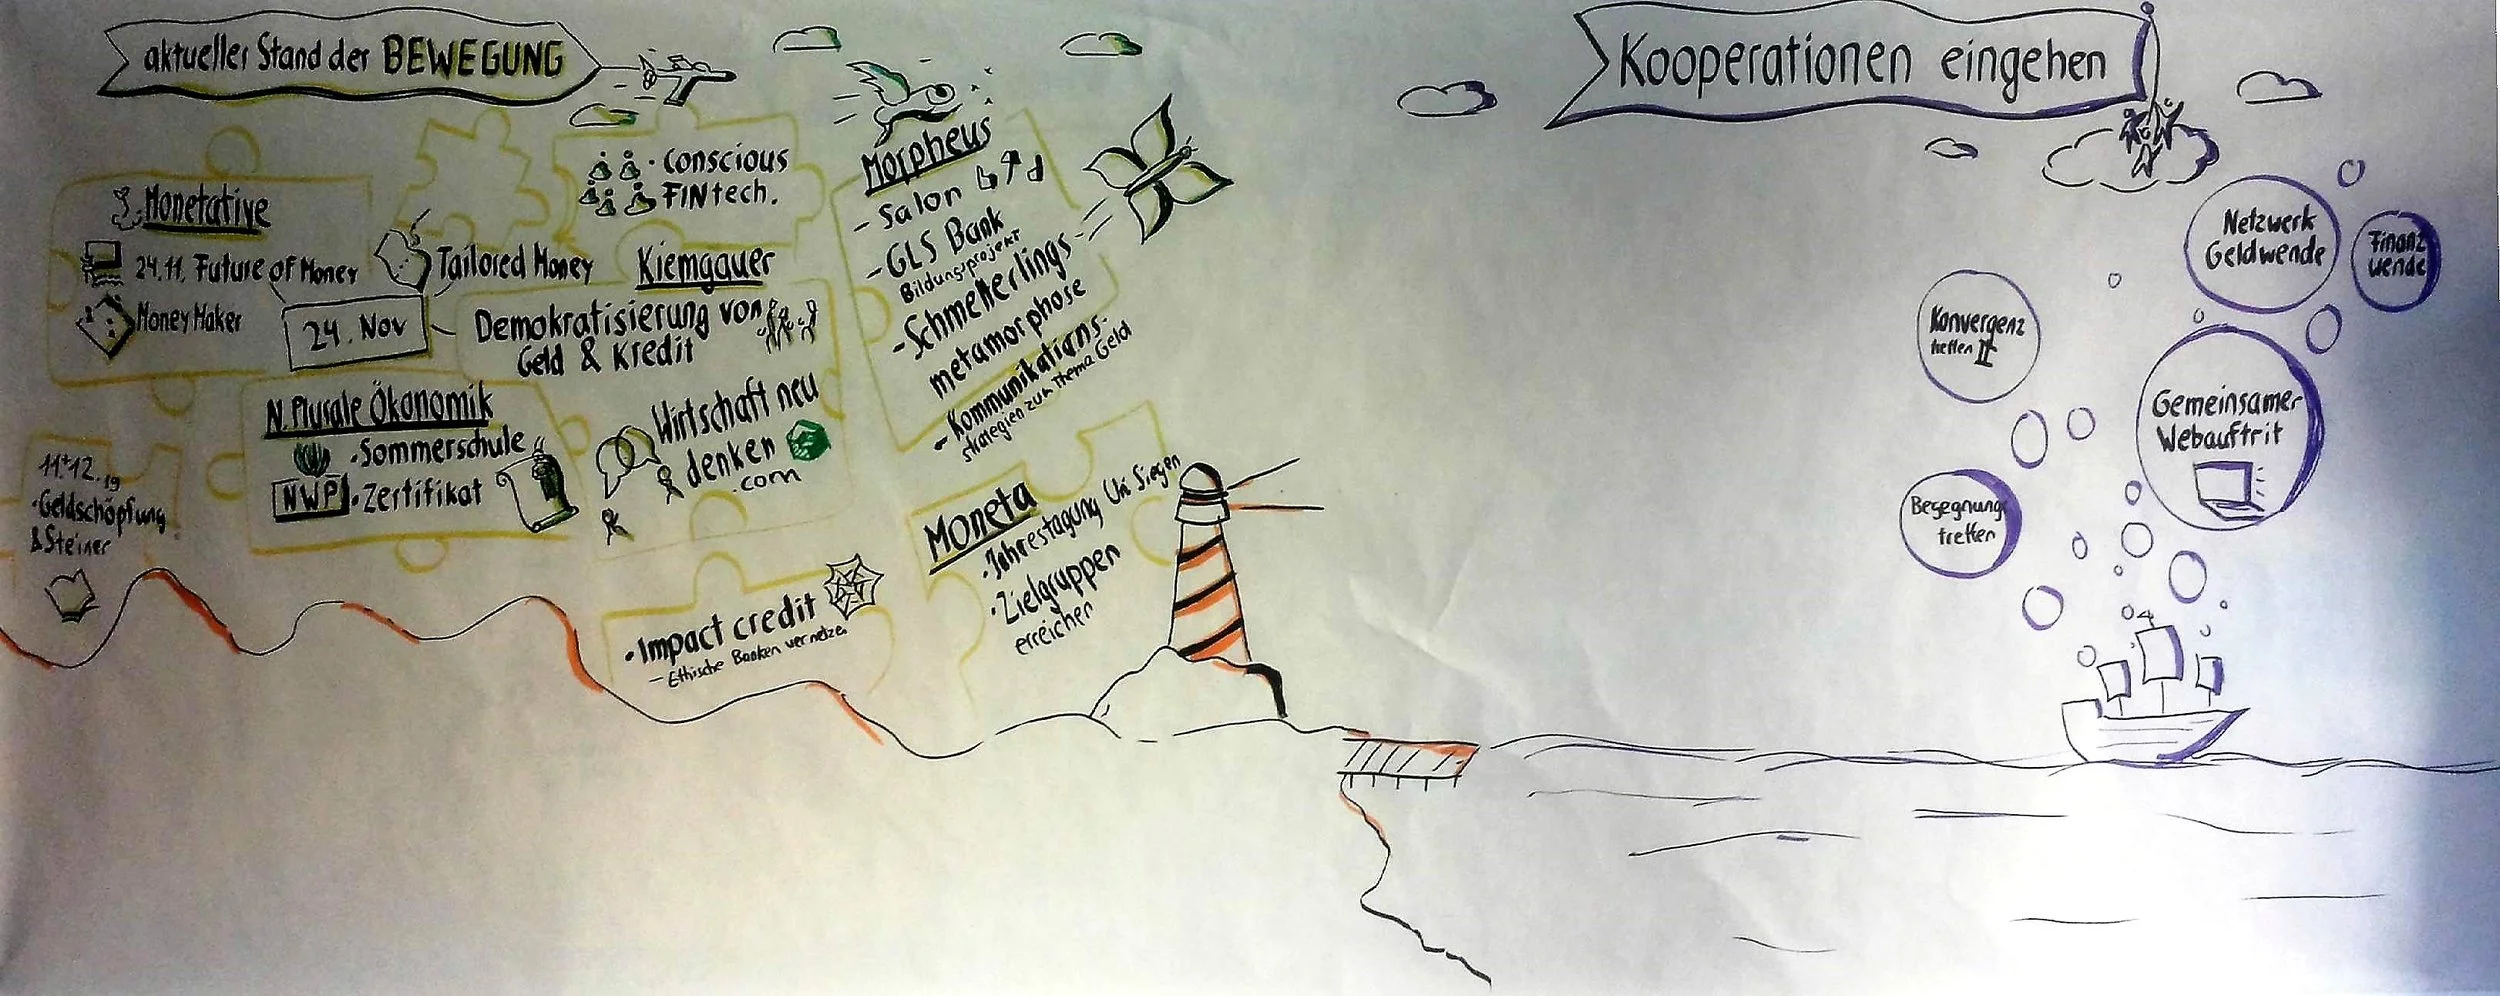 aktueller Stand der BEWEGUNG
Monetative
24.11. Future of Money
Money Maker
Tailored Money
24. Nov
· Conscious
FINtech.
Kiemgauer
Demokratisierung von
Geld & Kredit
N. Plurale Ökonomik
· Sommerschule
NWP · Zertifikat
Wirtschaft neu
denken
.com
11+12.19
· Geldschöpfung
& Steiner
Morpheus
- Salon
- GLS Bank
Bildungsprojekt
- Schmetterlings-
metamorphose
- Kommunikations-
strategien zum Thema Geld
Moneta
· Jahrestagung Uni Siegen
· Zielgruppen
erreichen
· Impact credit
- Ethische Banken vernetzen
Kooperationen eingehen
Netzwerk
Geldwende
Finanz
wende
Konvergenz
treffen II
Gemeinsamer
Webauftrit
Begegnungs
treffen